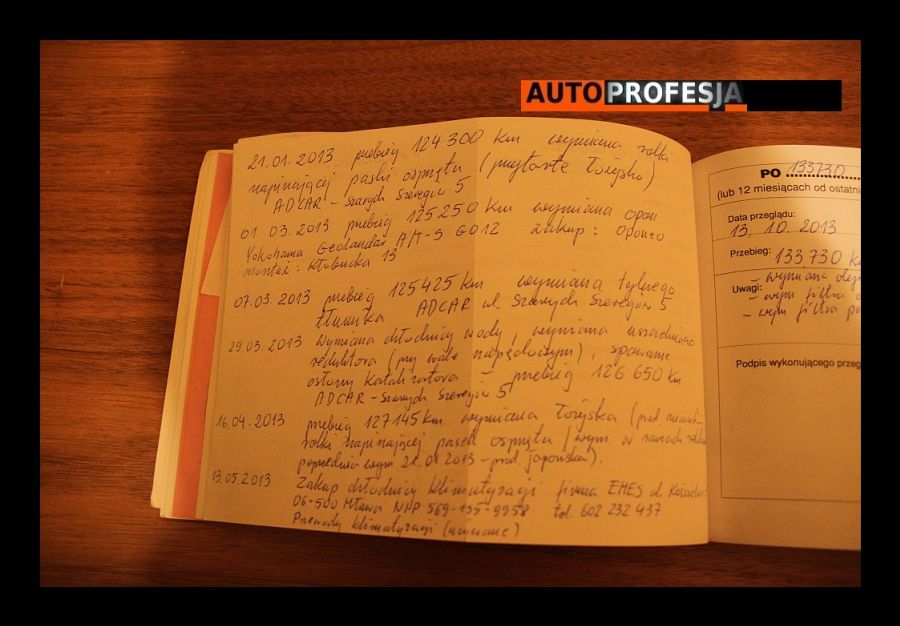 AUTOPROFESJA
21.01.2013 przebieg 124300 km wymiana rolki
napinającej paski osprzętu (przytarte łożysko)
ADCAR - Szarych Szeregów 5
01.03.2013 przebieg 125250 km wymiana opon
Yokohama Geolandar A/T-S G012 zakup: oponeo
montaż: Kłobucka 13
07.03.2013 przebieg 125425 km wymiana tylnego
tłumika ADCAR ul. Szarych Szeregów 5
29.03.2013 Wymiana chłodnicy wody, wymiana uszczelniacza
reduktora (przy wale napędowym), spawanie
osłony katalizatora - przebieg 126 650 km
ADCAR - Szarych Szeregów 5
16.04.2013 przebieg 127145 km wymiana łożyska (prod.
rolki napinającej pasek osprzętu (wym. w ramach
poprzednio wym 21.01.2013 - prod. japońska).
13.05.2013 Zakup chłodnicy klimatyzacji firma EMES ul.
06-500 Mława NIP 569-135-9958 tel. 602 232 437
Przewody klimatyzacji
PO 133730
(lub 12 miesiącach od ostatni
Data przeglądu:
13 10. 2013
Przebieg: 133 730 k
Uwagi: - wymiana olej
- wym filtra
- wym filtra
Podpis wykonującego przeg